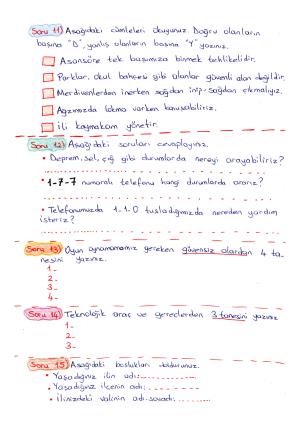 Soru 11) Aşağıdaki cümleleri okuyunuz. Doğru olanların
başına "D", yanlış olanların başına "Y" yazınız.
Asansöre tek başımıza binmek tehlikelidir.
Parklar, okul bahçesi gibi alanlar güvenli alan değildir.
Merdivenlerden inerken sağdan inip-sağdan çıkmalıyız.
Ağzımızda lokma varken konuşabiliriz.
İli kaymakam yönetir.
Soru 12) Aşağıdaki soruları cevaplayınız.
• Deprem, sel, çığ gibi durumlarda nereyi arayabiliriz?
• 1-7-7 numaralı telefonu hangi durumlarda ararız?
• Telefonumuzda 1-1-0 tuşladığımızda nereden yardım
isteriz?
Soru 13) Oyun oynamamamız gereken güvensiz alardan 4 ta-
nesini yazınız.
1-
2-
3-
4-
Soru 14) Teknolojik araç ve gereçlerden 3 tanesini yazınız
1-
2-
3-
Soru 15) Aşağıdaki boşlukları doldurunuz.
• Yaşadığınız ilin adı:
• Yaşadığınız ilçenin adı:
• İlinizdeki valinin adı-soyadı: